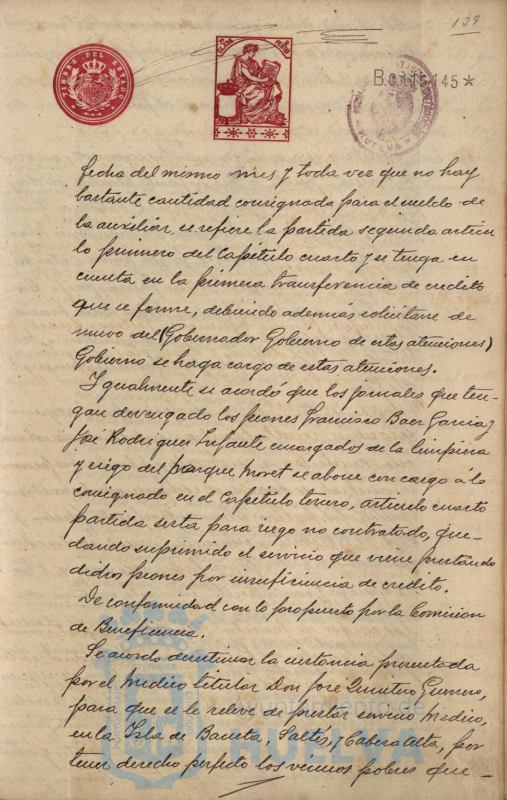 139
TIMBRE DEL ESTADO
B.0.115.145*
HUELVA
fecha del mismo mes y toda vez que no hay
bastante cantidad consignada para el sueldo de
la auxiliar, se refiere la partida segunda artícu
lo primero del Capítulo cuarto y se tenga en
cuenta en la primera transferencia de crédito
que se forme, debiendo además solicitarse de
nuevo del (Gobernador Gobierno de estas atenciones)
Gobierno se haga cargo de estas atenciones.
Igualmente se acordó que los jornales que ten-
gan devengado los peones Francisco Baez Garcia y
José Rodriguez Infante encargados de la limpieza
y riego del parque Moret se abone con cargo á lo
consignado en el Capítulo tercero, artículo cuarto
partida sexta para riego no contratado, que-
dando suprimido el servicio que viene prestando
dichos peones por insuficiencia de crédito.
De conformidad con lo propuesto por la Comision
de Beneficencia.
Se acordo desestimar la instancia presentada
por el Médico titular Don José Quintero Guerrero,
para que se le releve de prestar servicio Médico,
en la Isla de Bacuta, Saltés, y Cabeza Alta, por
tener derecho perfecto los vecinos pobres que-
Ayuntamiento de
HUELVA